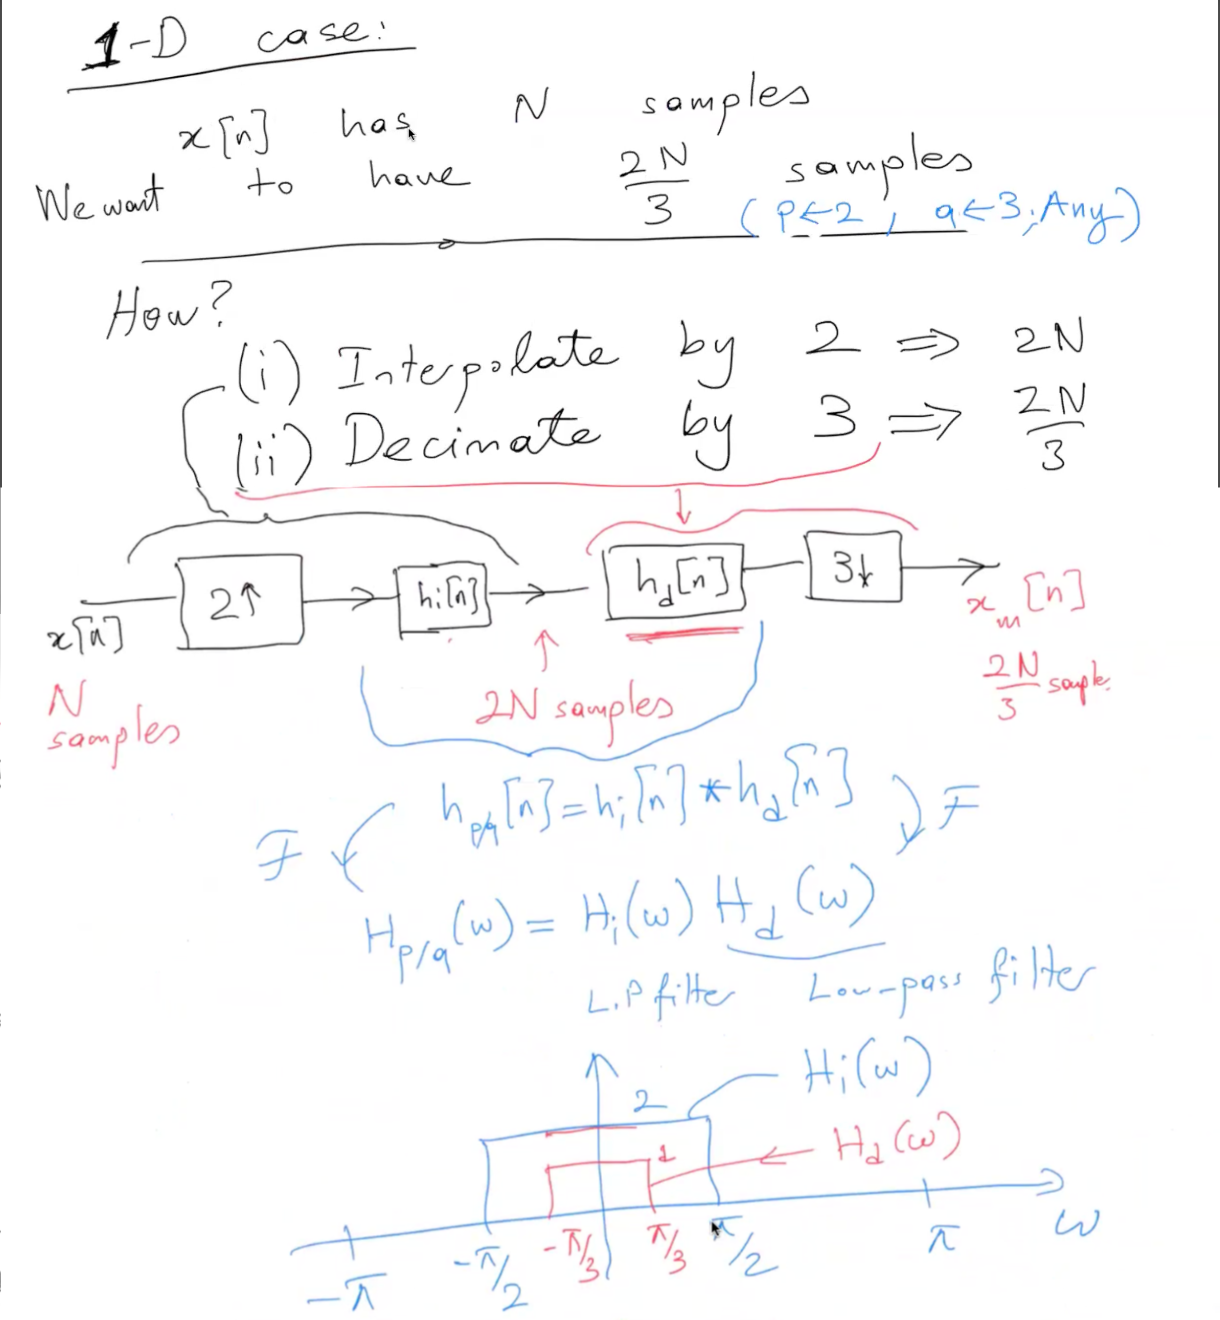 1-D case:
x[n] has N samples
We want to have 2N/3 samples
(p←2, q←3; Any)
How?
(i) Interpolate by 2 ⇒ 2N
(ii) Decimate by 3 ⇒ 2N/3
x[n] 2↑ hi[n] hd[n] 3↓ xm[n]
N samples
2N samples
2N/3 sample.
hp/q[n] = hi[n] * hd[n]
F F
Hp/q(ω) = Hi(ω) Hd(ω)
L.P filter Low-pass filter
Hi(ω)
2
1 Hd(ω)
-π -π/2 -π/3 π/3 π/2 π ω